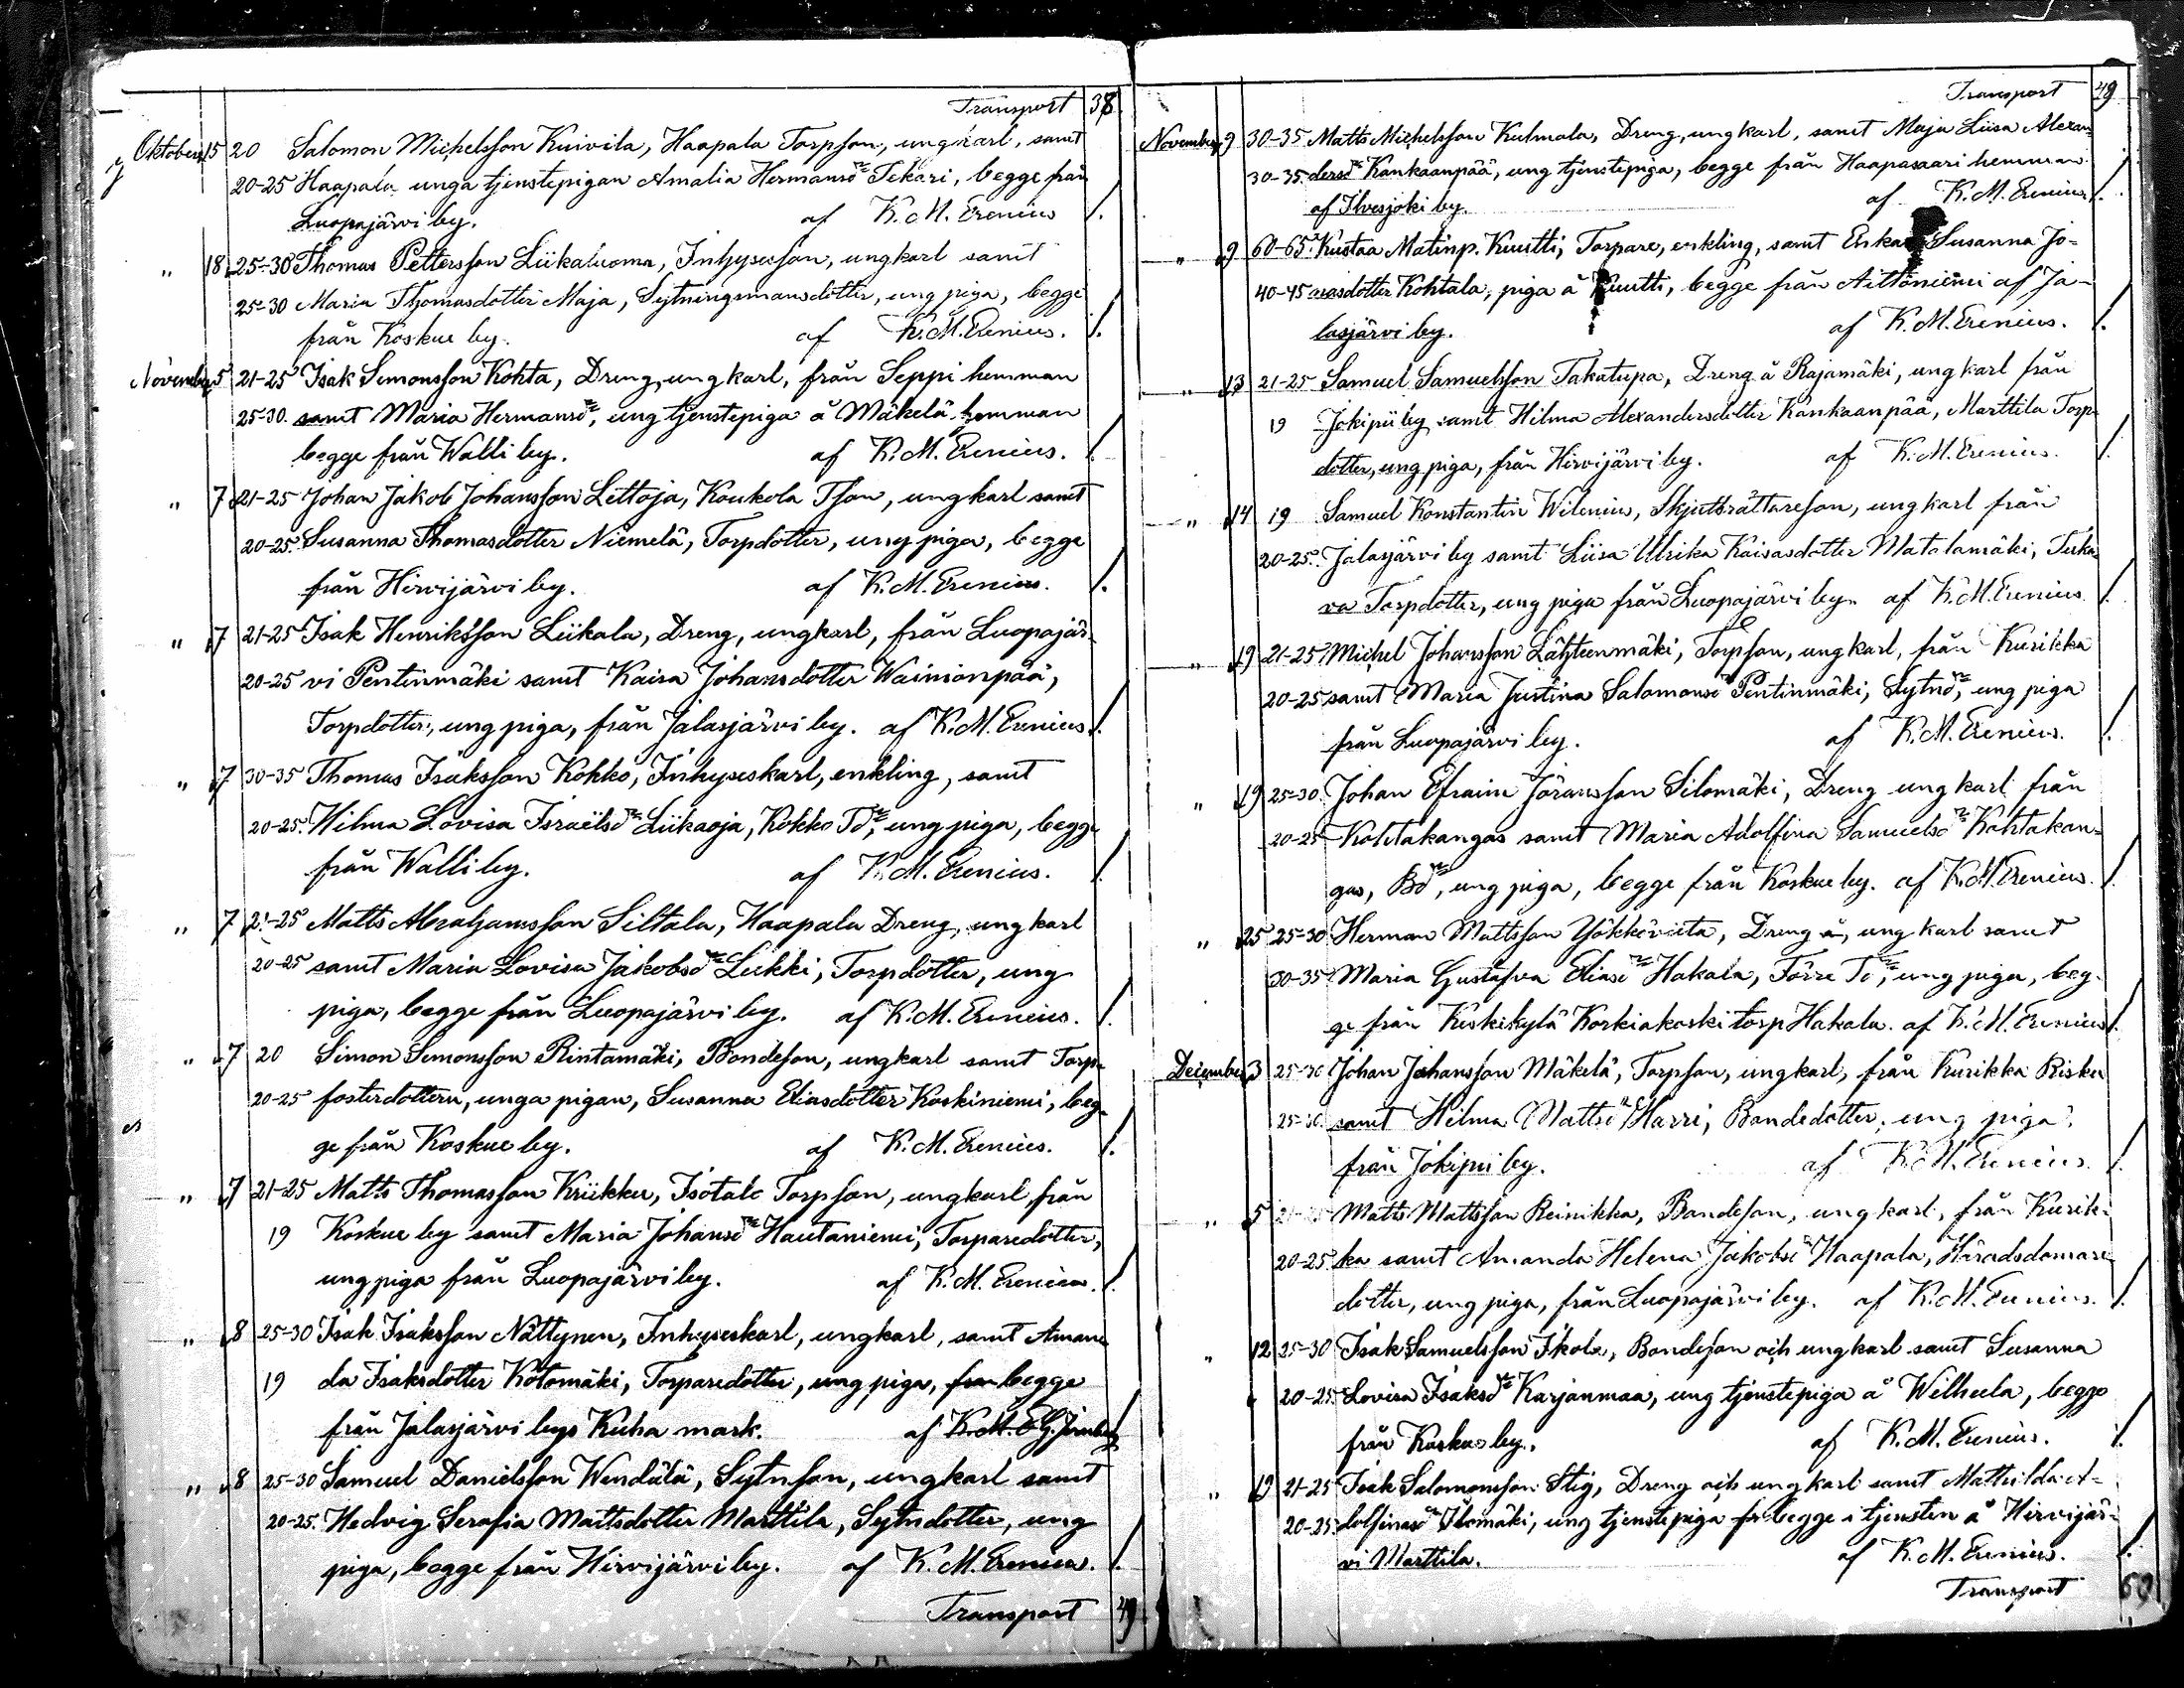 Transport 38
Oktober 15 20 Salomon Michelsson Kuivila, Haapala Torpson, ungkarl, samt
20-25 Haapala unga tjenstepigan Amalia Hermansdr Tekari, begge från
Luopajärvi by. af K. M. Erenius /.
" 18 25-30 Thomas Pettersson Liikaluoma, Inhysesson, ungkarl samt
25-30 Maria Thomasdotter Maja, Sytningsmansdotter, ung piga, begge
från Koskue by. af K. M. Erenius. /.
November 5 21-25 Isak Simonsson Kohta, Dreng, ungkarl, från Seppi hemman
25-30. samt Maria Hermansdr, ung tjenstepiga å Mäkelä hemman
begge från Walli by. af K. M. Erenius. /.
" 7 21-25 Johan Jakob Johansson Lettoja, Koukola Tson, ungkarl samt
20-25. Susanna Thomasdotter Niemelä, Torpdotter, ung piga, begge
från Hirvijärvi by. af K. M. Erenius. /.
" 7 21-25 Isak Henriksson Liikala, Dreng, ungkarl, från Luopajär-
20-25 vi Pentinmäki samt Kaisa Johansdotter Wainionpää,
Torpdotter, ung piga, från Jalasjärvi by. af K. M. Erenius /.
" 7 30-35 Thomas Isaksson Kokko, Inhyseskarl, enkling, samt
20-25. Hilma Lovisa Israelsdr Liikaoja, Kokko Tdr, ung piga, begge
från Walli by. af K. M. Erenius. /.
" 7 21-25 Matts Abrahamsson Siltala, Haapala Dreng, ungkarl
20-25 samt Maria Lovisa Jakobsdr Likki, Torpdotter, ung
piga, begge från Luopajärvi by. af K. M. Erenius. /.
" 7 20 Simon Simonsson Rintamäki, Bondeson, ungkarl samt Torp-
20-25 fosterdottern, unga pigan, Susanna Eliasdotter Koskiniemi, beg-
ge från Koskue by. af K. M. Erenius. /.
" 7 21-25 Matts Thomasson Kriikku, Isotalo Torpson, ungkarl från
19 Koskue by samt Maria Johansdr Hautaniemi, Torparedotter,
ung piga från Luopajärvi by. af K. M. Erenius. /.
" 8 25-30 Isak Isaksson Nättynen, Inhyseskarl, ungkarl, samt Aman-
19 da Isaksdotter Kotomäki, Torparedotter, ung piga, begge
från Jalasjärvi bys Kuha mark. af K. M. /
" 8 25-30 Samuel Danielsson Wendälä, Sytnson, ungkarl samt
20-25. Hedvig Serafia Mattsdotter Marttila, Sytndotter, ung
piga, begge från Hirvijärvi by. af K. M. Erenius. /.
Transport 49
Transport 49
November 9 30-35 Matts Michelsson Kulmala, Dreng, ungkarl, samt Maja Liisa Alexan-
30-35. dersdr Kankaanpää, ung tjenstepiga, begge från Haapasaari hemman
af Ilvesjoki by. af K. M. Erenius /.
" 9 60-65 Kustaa Matinp. Kuutti, Torpare, enkling, samt Susanna Jo-
40-45 nasdotter Kohtala, piga å Kuutti, begge från Aittoniemi af Ja-
lasjärvi by. af K. M. Erenius. /.
" 13 21-25 Samuel Samuelsson Takatupa, Dreng å Rajamäki, ungkarl från
19 Jokipii by samt Hilma Alexandersdotter Kankaanpää, Marttila Torp-
dotter, ung piga, från Hirvijärvi by. af K. M. Erenius. /.
" 14 19 Samuel Konstantin Wilenius, Skjutsrättareson, ungkarl från
20-25. Jalasjärvi by samt Liisa Ulrika Kaisasdotter Matalamäki, Tuka-
va Torpdotter, ung piga från Luopajärvi by. af K. M. Erenius /.
" 19 21-25 Michel Johansson Lähteenmäki, Torpson, ungkarl, från Kurikka
20-25 samt Maria Justina Salomonsdr Pentinmäki, Sytndr, ung piga
från Luopajärvi by. af K. M. Erenius. /.
" 19 25-30. Johan Efraim Göransson Silomäki, Dreng ungkarl från
20-25 Kohtakangas samt Maria Adolfina Samuelsdr Kohtakan-
gas, Bdr, ung piga, begge från Koskue by. af K. M. Erenius. /.
" 25 25-30 Herman Mattsson Yökköviita, Dreng å, ungkarl samt
30-35 Maria Gustafva Eliasdr Hakala, Törre Tdr, ung piga, beg-
ge från Keskikylä Korkiakoski torp Hakala. af K. M. Erenius /.
December 3 25-30 Johan Johansson Mäkelä, Torpson, ungkarl, från Kurikka Risku
25-30 samt Hilma Mattsdr Harri, Bondedotter, ung piga
från Jokipii by. af K. M. Erenius. /.
" 5 21-25 Matts Mattsson Reinikka, Bondeson, ungkarl, från Kurik-
20-25 ka samt Amanda Helena Jakobsdr Haapala, Häradsdomare-
dotter, ung piga, från Luopajärvi by. af K. M. Erenius. /.
" 12 25-30 Isak Samuelsson Ikola, Bondeson och ungkarl samt Susanna
20-25. Lovisa Isaksdr Karjanmaa, ung tjenstepiga å Wilheela, begge
från Koskue by. af K. M. Erenius. /.
" 19 21-25 Isak Salomonsson Stig, Dreng och ungkarl samt Mathilda A-
20-25 dolfinasdr Ilomäki, ung tjenstepiga begge i tjensten å Hirvijär-
vi Marttila. af K. M. Erenius. /.
Transport 60